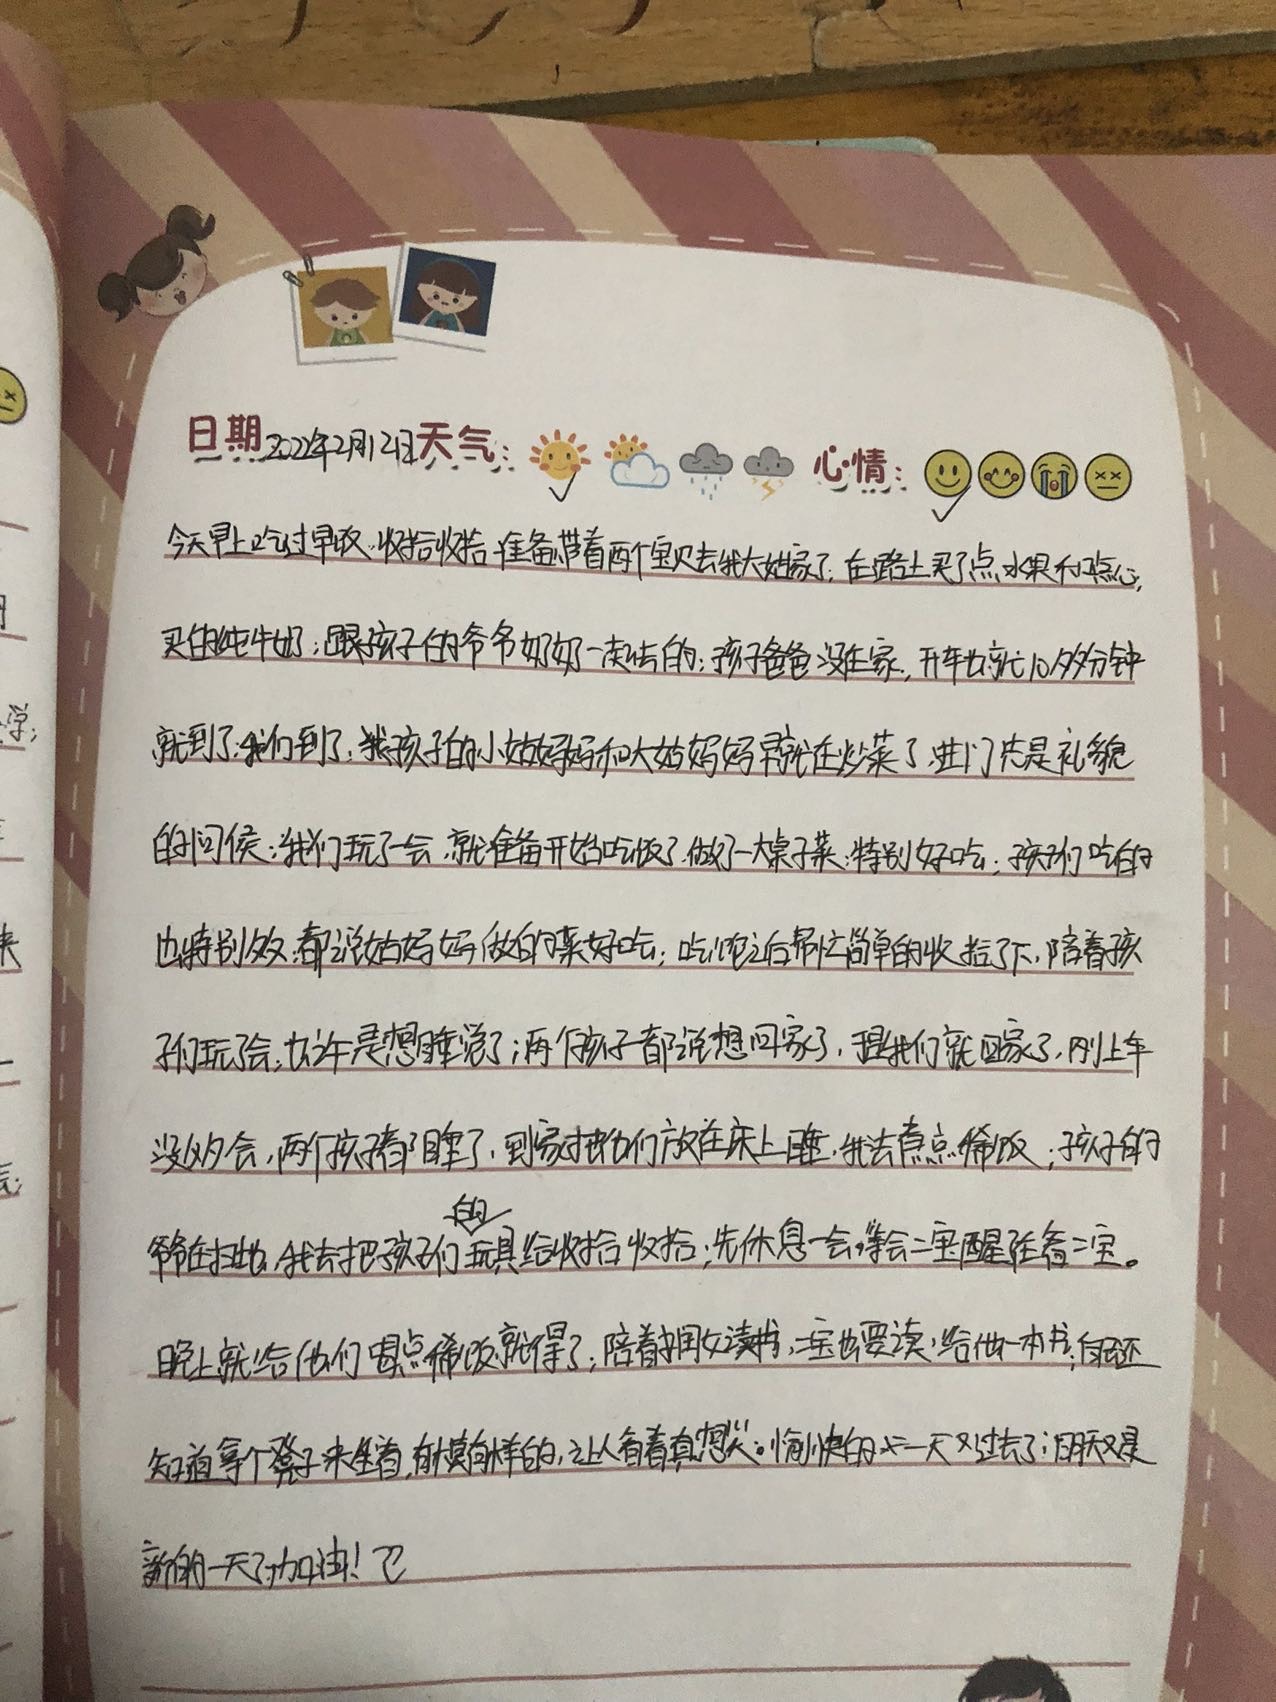 日期2022年2月12日天气： 心情：
今天早上吃过早饭，收拾收拾准备带着两个宝贝去我大姑家了，在路上买了点水果和点心，
买的纯牛奶；跟孩子的爷爷奶奶一块去的；孩子爸爸没在家，开车也就10多分钟
就到了；我们到了，我孩子的小姑妈妈和大姑妈妈早就在炒菜了，进门先是礼貌
的问候；我们玩了一会，就准备开始吃饭了，做了一大桌子菜；特别好吃；孩子们吃的
也特别多，都说姑妈妈做的菜好吃；吃饱之后帮忙简单的收拾了下，陪着孩
子们玩了会，也许是想睡觉了；两个孩子都说想回家了，跟我们就回家了，刚上车
没多会，两个孩子都睡了，到家才把他们放在床上睡，我去煮点稀饭；孩子的
爷爷在扫地，我去把孩子们的玩具给收拾收拾；先休息一会，等会二宝醒在看二宝。
晚上就给他们喝点稀饭就得了；陪着闺女读书，二宝也要读，给他一本书；自己还
知道拿个凳子来坐着，有模有样的，让人看着真想笑。愉快的一天又过去了；明天又是
新的一天了，加油！